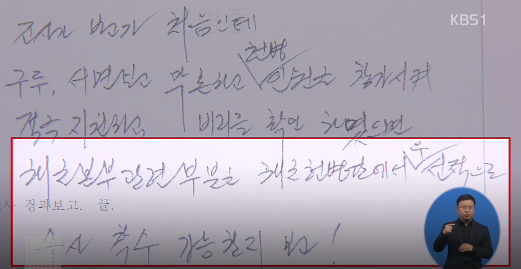 KBS1
조사 보고가 처음인데
구두, 서면보고 막론하고 헌병 인원을 참가시켜
적극 지원하고 비리를 확인 하였으면
해군본부 관련 부분은 해군헌병단에서 우선적으로
경과보고. 끝.
수사 착수 가능한지 보고!